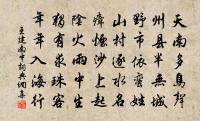 天南多鳥聲
州縣半無城
野市依蠻姓
山村逐水名
瘴煙沙上起
陰火雨中生
獨有求珠客
年年入海行
王建南中詞典網書